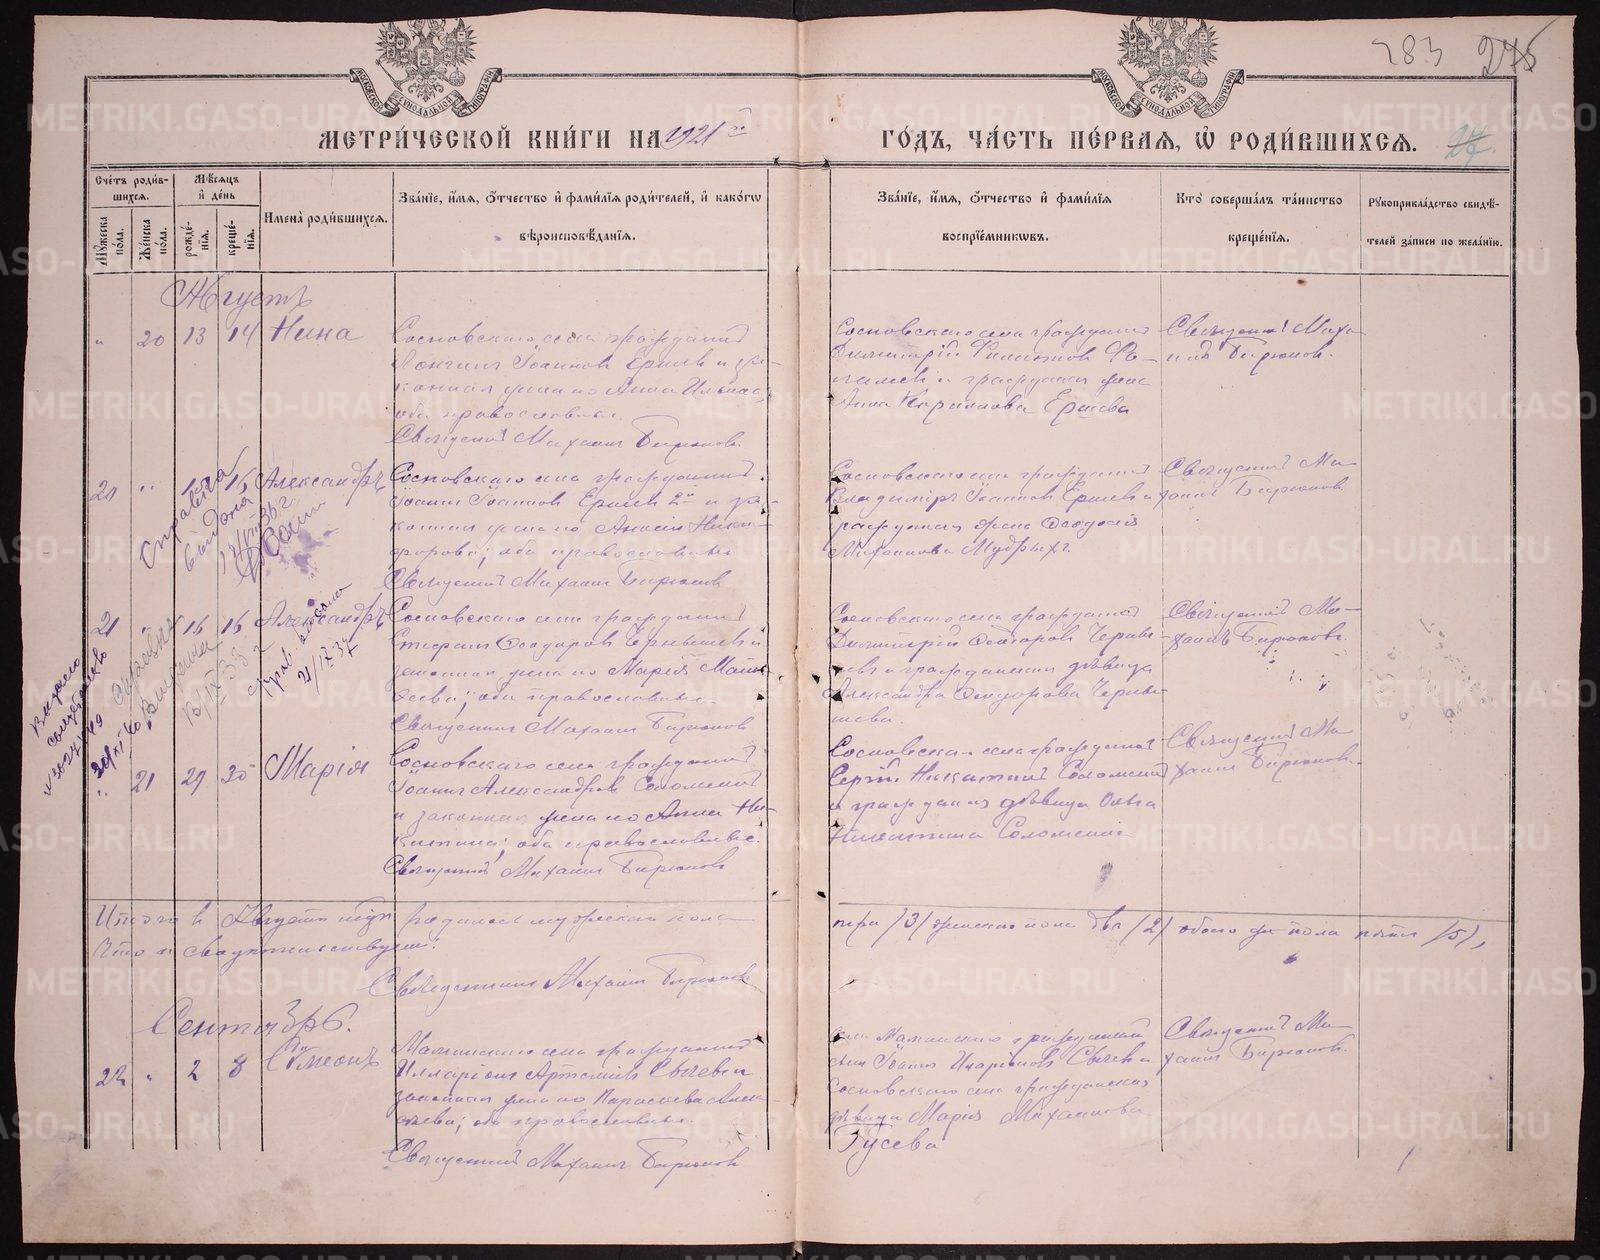 283 275
МЕТРИ́ЧЕСКОЙ КНИ́ГИ НА 1921 й ГО́ДЪ, ЧА́СТЬ ПЕ́РВАѦ, Ѡ҆ РОДИ́ВШИХСѦ.
Сче́тъ роди́в-
шихсѧ.
Му́жеска по́ла.
Же́нска по́ла.
Мѣ́сѧцъ
и҆ де́нь
рожде́-
нїѧ.
креще́-
нїѧ.
И҆мена̀ роди́вшихсѧ.
Зва́нїе, и҆́мѧ, ѻ҆́тчество и҆ фами́лїѧ роди́телей, и҆ како́гѡ
вѣроисповѣ́данїѧ.
Зва́нїе, и҆́мѧ, ѻ҆́тчество и҆ фами́лїѧ
воспрїе́мникѡвъ.
Кто̀ соверша́лъ та́инство
креще́нїѧ.
Рꙋкоприкла́дство свидѣ́-
телей за́писи по жела́нїю.
Августъ
" 20 13 14 Нина
Сосновскаго села гражданинъ
Лонгинъ Іоанновъ Ершевъ и за-
конная жена его Анна Ильина,
оба православные.
Священникъ Михаилъ Бирюковъ.
Сосновскаго села гражданинъ
Димитрій
и гражданка жена
Анна Кириллова Ершева
Священникъ Миха-
илъ Бирюковъ.
21 " 15 Александръ
Сосновскаго села гражданинъ
Іоаннъ Іоанновъ Ершевъ 2й и за-
конная жена его Анисія Ники-
форова; оба православные
Священникъ Михаилъ Бирюковъ
Сосновскаго села гражданинъ
Владиміръ Іоанновъ Ершевъ и
гражданка жена Ѳеодосія
Михаилова Мудрыхъ.
Священникъ Ми-
хаилъ Бирюковъ.
Справка
выдана
21 " 16 16 Александръ
Сосновскаго села гражданинъ
Стефанъ Ѳеодоровъ Чернышевъ и
законная жена его Марія Матѳ-
ѣева; оба православные.
Священникъ Михаилъ Бирюковъ
Сосновскаго села гражданинъ
Димитрій Ѳеодоровъ Черны-
шевъ и гражданка дѣвица
Александра Ѳеодорова Черны-
шева.
Священникъ Ми-
хаилъ Бирюковъ.
" 21 29 30 Марія
Сосновскаго села гражданинъ
Іоаннъ Александровъ Соломеинъ
и законная жена его Анна Ни-
китина; оба православные.
Священникъ Михаилъ Бирюковъ
Сосновскаго села гражданинъ
Сергій Никитинъ Соломеинъ
и гражданка дѣвица Ольга
Никитина Соломеина
Священникъ Ми-
хаилъ Бирюковъ.
Итого въ Августѣ м-цѣ родилось мужеска пола три /3/ женска пола два /2/ обоего же пола пять /5/,
Что и свидѣтельствуемъ:
Священникъ Михаилъ Бирюковъ
Сентябрь.
22 " 2 8 Сѵмеонъ
Маминскаго села гражданинъ
Илларіонъ Артеміевъ Сычевъ и
законная жена его Параскева Алек-
сѣева; оба православные.
Священникъ Михаилъ Бирюковъ
села Маминскаго гражданинъ
Іоаннъ Иларіоновъ Сычевъ и
Сосновскаго села гражданская
дѣвица Марія Михаилова
Гусева
Священникъ Ми-
хаилъ Бирюковъ.
METRIKI.GASO-URAL.RU